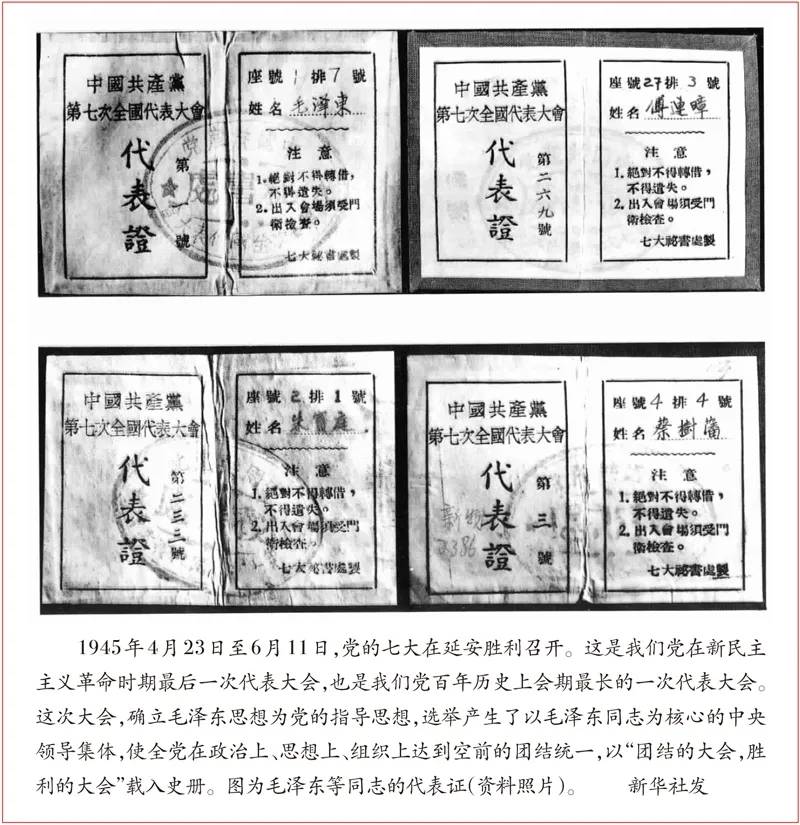 中國共產黨
第七次全國代表大會
代表證
第一號
座號1排7號
姓名 毛澤東
注意
1.絕對不得轉借，
不得遺失。
2.出入會場須受門
衛檢查。
七大祕書處製
中國共產黨
第七次全國代表大會
代表證
第二六九號
座號27排3號
姓名 傅連暲
注意
1.絕對不得轉借，
不得遺失。
2.出入會場須受門
衛檢查。
七大祕書處製
中國共產黨
第七次全國代表大會
代表證
第二三三號
座號2排1號
姓名 朱寶庭
注意
1.絕對不得轉借，
不得遺失。
2.出入會場須受門
衛檢查。
七大祕書處製
中國共產黨
第七次全國代表大會
代表證
第三號
座號4排4號
姓名 蔡樹藩
注意
1.絕對不得轉借，
不得遺失。
2.出入會場須受門
衛檢查。
七大祕書處製
1945年4月23日至6月11日，党的七大在延安胜利召开。这是我们党在新民主
主义革命时期最后一次代表大会，也是我们党百年历史上会期最长的一次代表大会。
这次大会，确立毛泽东思想为党的指导思想，选举产生了以毛泽东同志为核心的中央
领导集体，使全党在政治上、思想上、组织上达到空前的团结统一，以“团结的大会，胜
利的大会”载入史册。图为毛泽东等同志的代表证(资料照片)。 新华社发